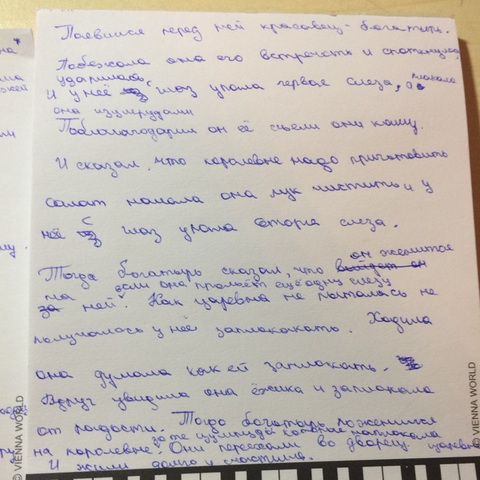 Появился перед ней красавец-богатырь.
Побежала она его встречать и споткнулась
ударилась,
И у неё с глаз упала первая слеза,
она изумрудами
Поблагодарил он её съели они кашу.
И сказал, что королевне надо приготовить
салат начала она лук чистить и у
неё с глаз упала вторая слеза.
он женится
Тогда богатырь сказал, что
если она прольёт ещё одну слезу
на ней. Как царевна не пыталась не
получалось у неё заплакать. Ходила
она думала как ей заплакать.
Вдруг увидила она ёжика и заплакала
от радости. Тогда богатырь поженился
за те изумруды которые наплакала
на королевне. Они переехали во дворец царевны
И жили долго и счастливо.
© VIENNA WORLD
© VIENNA WORLD